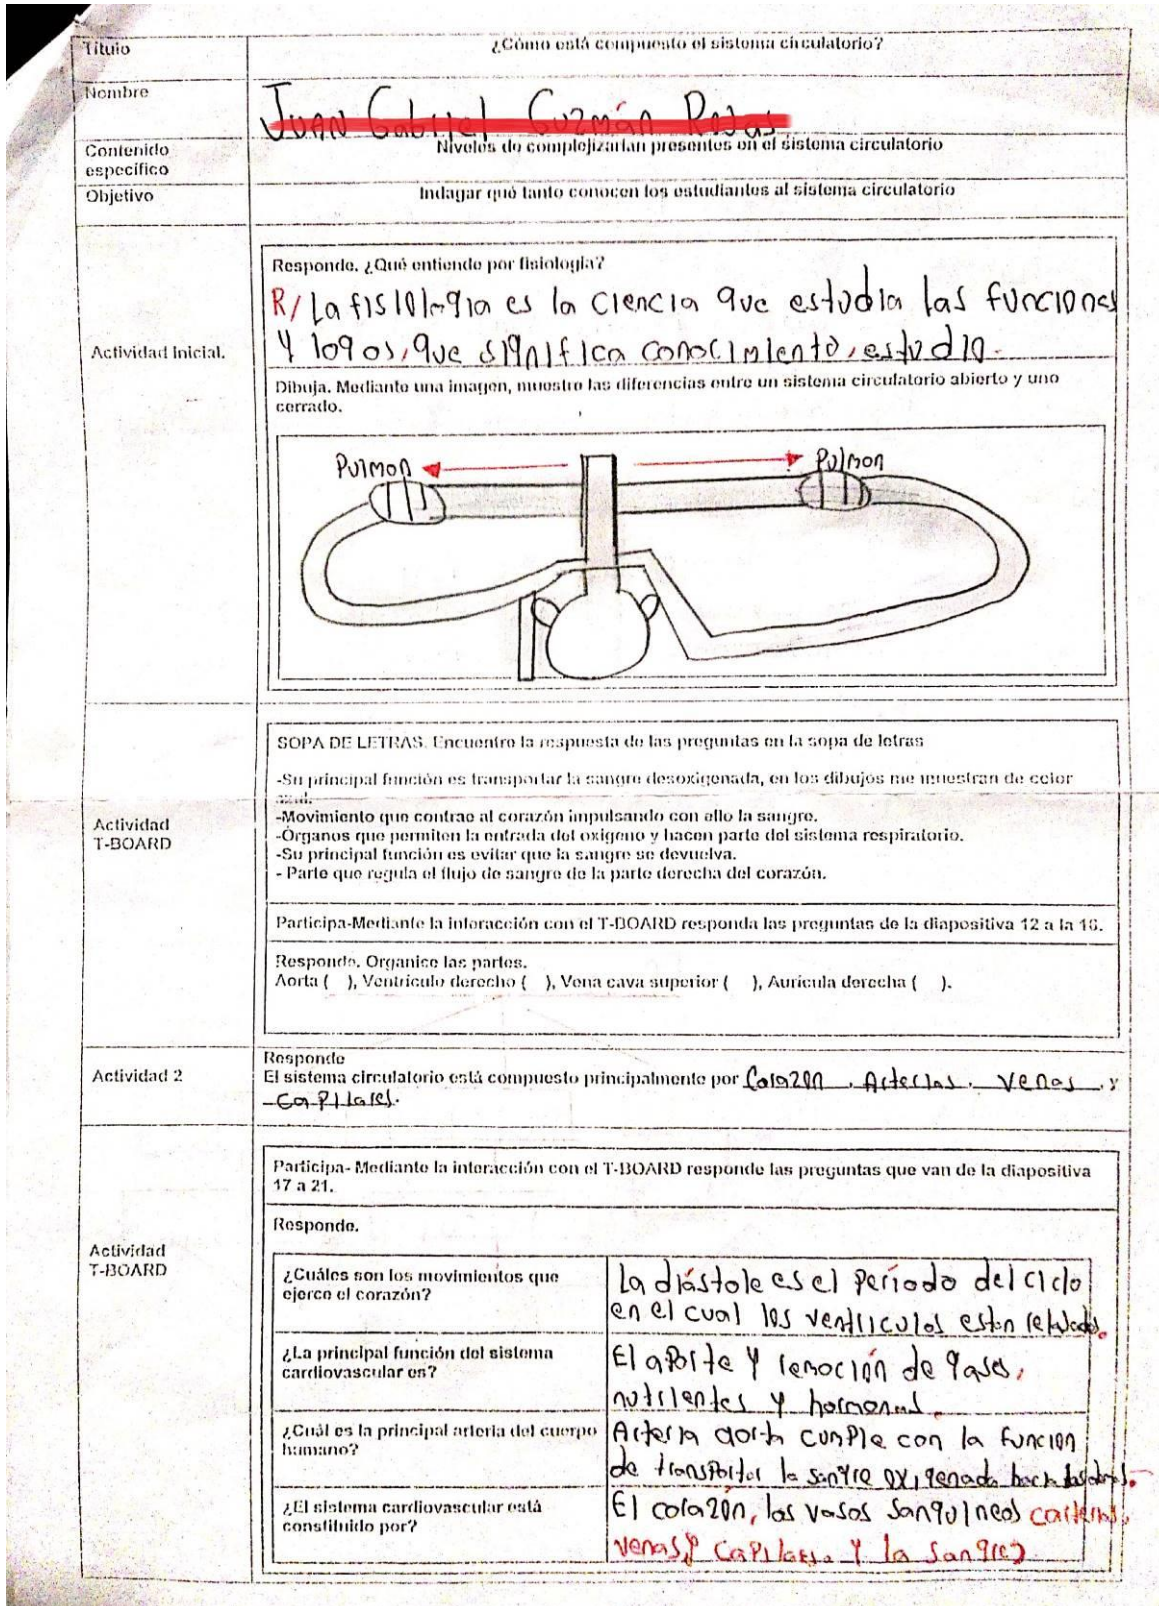 Título
¿Cómo está compuesto el sistema circulatorio?
Nombre
Juan Gabriel Guzmán Rojas
Contenido
específico
Niveles de complejizarían presentes en el sistema circulatorio
Objetivo
Indagar qué tanto conocen los estudiantes al sistema circulatorio
Actividad Inicial.
Responde. ¿Qué entiende por fisiología?
R/ La fisiología es la ciencia que estudia las funciones
y logos, que significa conocimiento, estudio.
Dibuja. Mediante una imagen, muestre las diferencias entre un sistema circulatorio abierto y uno
cerrado.
Pulmon Pulmon
Actividad
T-BOARD
SOPA DE LETRAS. Encuentre la respuesta de las preguntas en la sopa de letras
-Su principal función es transportar la sangre desoxigenada, en los dibujos me muestran de color
azul.
-Movimiento que contrae al corazón impulsando con ello la sangre.
-Órganos que permiten la entrada del oxigeno y hacen parte del sistema respiratorio.
-Su principal función es evitar que la sangre se devuelva.
- Parte que regula el flujo de sangre de la parte derecha del corazón.
Participa-Mediante la interacción con el T-BOARD responda las preguntas de la diapositiva 12 a la 16.
Responde. Organice las partes.
Aorta ( ), Ventrículo derecho ( ), Vena cava superior ( ), Aurícula derecha ( ).
Actividad 2
Responde
El sistema circulatorio está compuesto principalmente por Corazon, Arterias, venas y
capilares.
Actividad
T-BOARD
Participa- Mediante la interacción con el T-BOARD responde las preguntas que van de la diapositiva
17 a 21.
Responde.
¿Cuáles son los movimientos que
ejerce el corazón?
La diástole es el período del ciclo
en el cual los ventriculos estan relajados.
¿La principal función del sistema
cardiovascular es?
El aporte y remoción de gases,
nutrientes y hormonas.
¿Cuál es la principal arteria del cuerpo
humano?
Arteria aorta cumple con la funcion
de transportar la sangre oxigenada hacia
¿El sistema cardiovascular está
constituido por?
El corazón, los vasos sanguineos (arterias,
venas y capilares. Y la sangre)